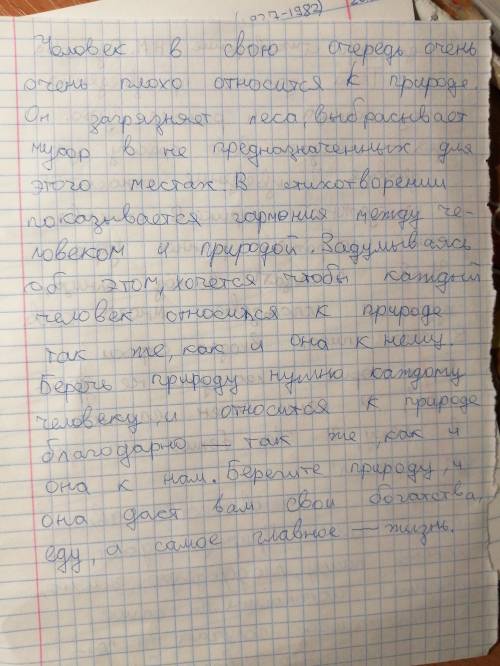 1987)
Человек в свою очередь очень
очень плохо относится к природе.
Он загрязняет леса, выбрасывает
мусор в не предназначенных для
этого местах. В стихотворении
показывается гармония между че-
ловеком и природой. Задумываясь
об этом, хочется чтобы каждый
человек относился к природе
так же, как и она к нему.
Беречь природу нужно каждому
человеку, и относится к природе
благодарно — так же, как и
она к нам. Берегите природу, и
она даст вам свои богатства,
еду, а самое главное — жизнь.